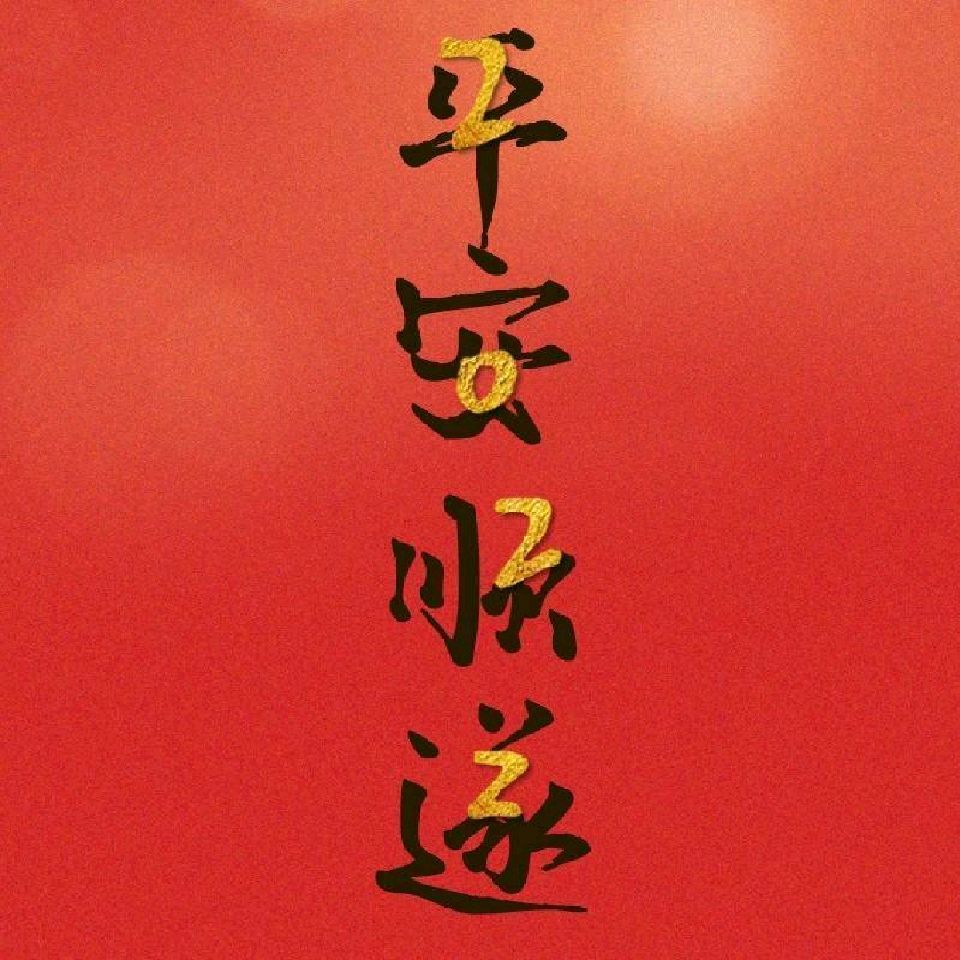 平安顺遂
2022